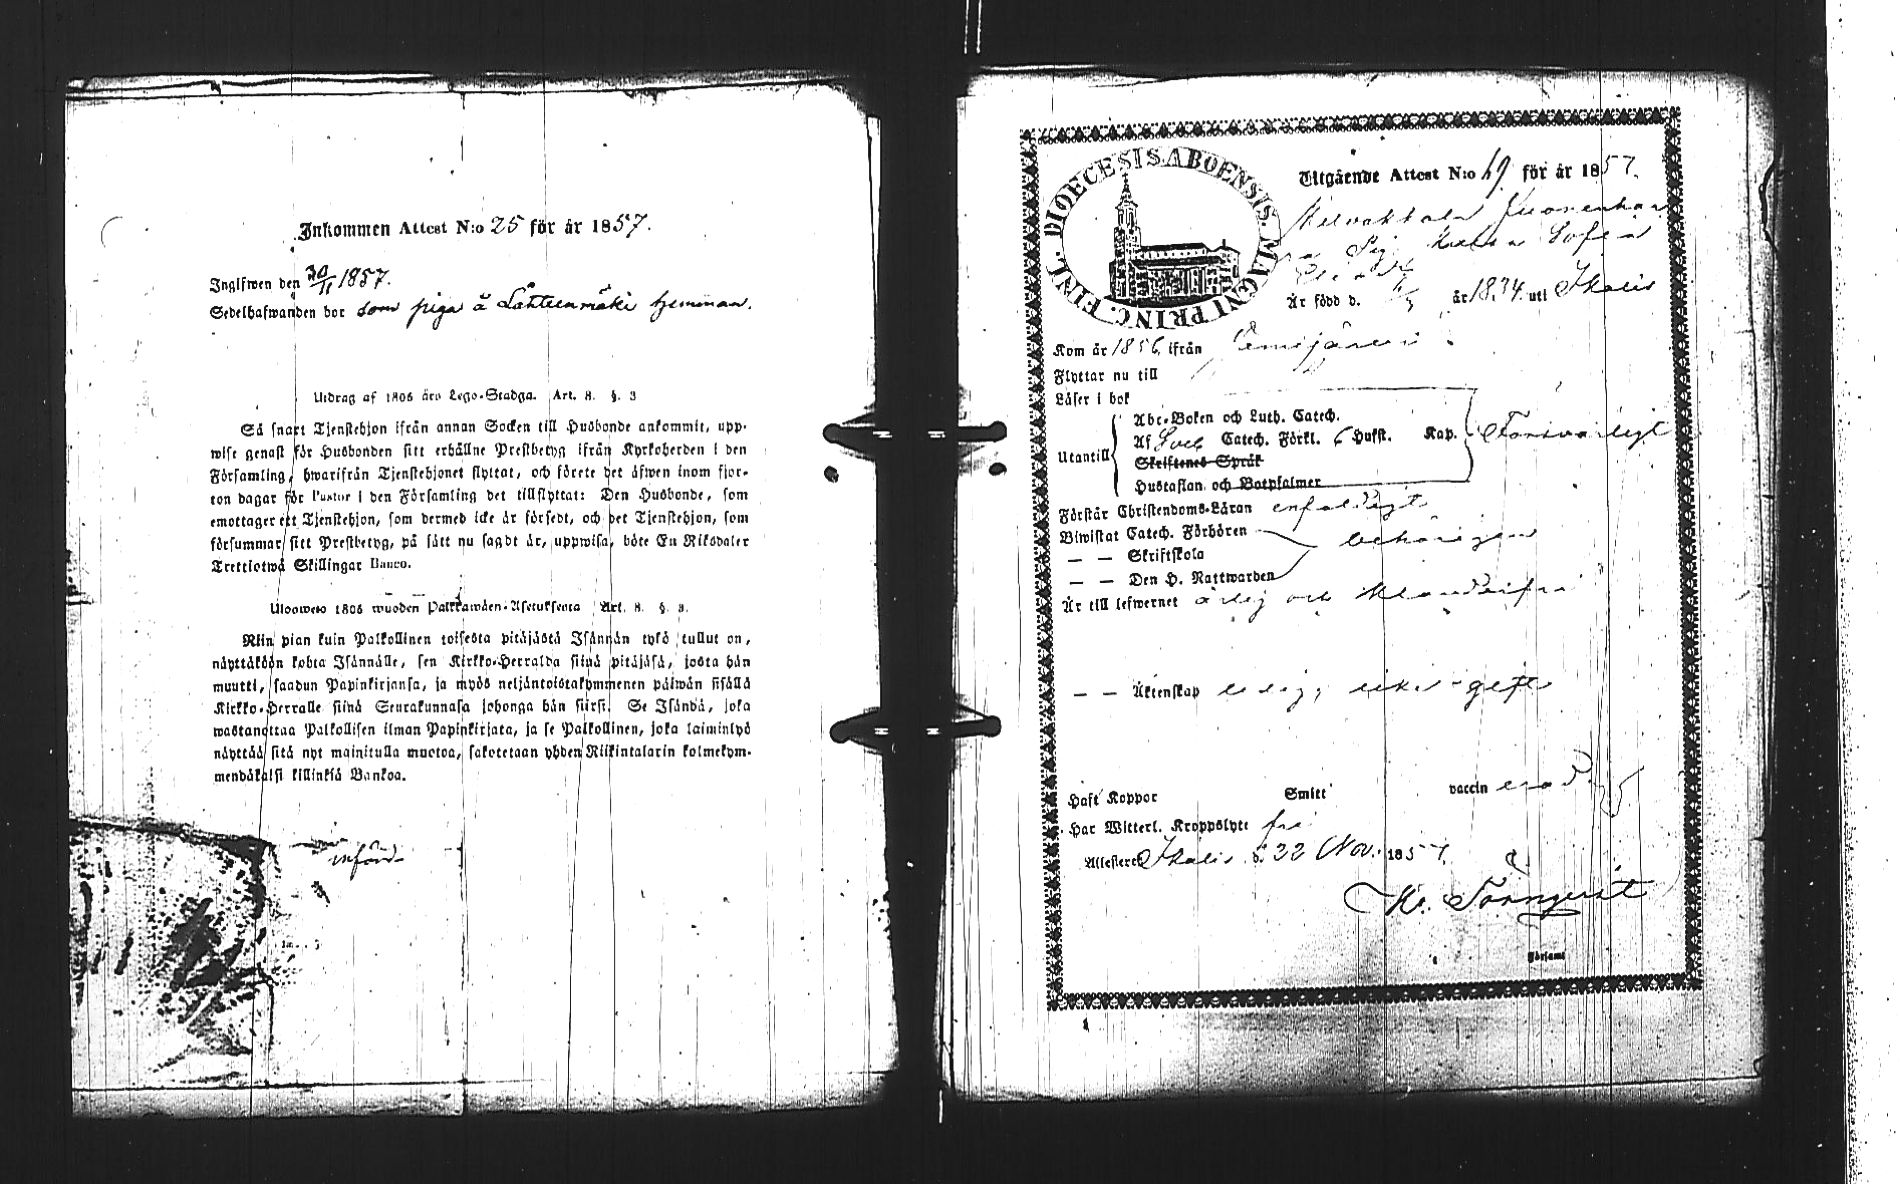 Inkommen Attest N:o 25 för år 1857.
Inglfwen den 30/11 1857.
Sedelhafwanden bor som piga å Lähteenmäki hemman.
Utdrag af 1805 års Lego-Stadga. Art. 8. §. 3
Så snart Tjenstehjon ifrån annan Socken till Husbonde ankommit, upp-
wise genast för Husbonden sitt erhållne Prestbetyg ifrån Kyrkoherden i den
Församling, hwarifrån Tjenstehjonet flyttat, och förete det äfwen inom fjor-
ton dagar för Pastor i den Församling det tillflyttat: Den Husbonde, som
emottager ett Tjenstehjon, som dermed icke är försedt, och det Tjenstehjon, som
försummar sitt Prestbetyg, på sätt nu sagdt är, uppwisa, böte En Riksdaler
Trettiotwå Skillingar Banco.
Ulosweto 1805 wuoden Palkkawäen-Asetuksesta Art. 8. §. 3.
Niin pian kuin Palkollinen toisesta pitäjästä Isännän tykö tullut on,
näyttäköön kohta Isännälle, sen Kirkko-Herralda siinä pitäjäsä, josta hän
muutti, saadun Papinkirjansa, ja myös neljäntoistakymmenen päiwän sisällä
Kirkko-Herralle siinä Seurakunnasa johonga hän siirsi. Se Isändä, joka
wastanottaa Palkollisen ilman Papinkirjata, ja se Palkollinen, joka laiminlyö
näyttää sitä nyt mainitulla muotoa, sakotetaan yhden Riikintalarin kolmekym-
mendäkaksi killinkiä Bankoa.
införd
DIOECESIS ABOENSIS. MAGNI PRINC. FINL.
Utgående Attest N:o 69 för år 1857.
Sofia
Är född d. år 1834 uti Ikalis
Kom år 1856 ifrån
Flyttar nu till
Läser i bok
Abc-Boken och Luth. Catech.
Utantill Af Sveb Catech. Förkl. 6 Hufst. Kap. Försvarligt
Skriftenes Språk
Hustaflan och Botpsalmer
Förstår Christendoms-Läran enfaldigt
Biwistat Catech. Förhören behörigen
— — Skriftskola
— — Den H. Nattwarden
Är till lefwernet ärlig och klanderfri
— — Äktenskap ledig, icke gift
Haft Koppor Smitt vaccin
Har Witterl. Kroppslyte fri
Attesterar Ikalis d. 22 Nov. 1857.
K. Törnqvist
Församl